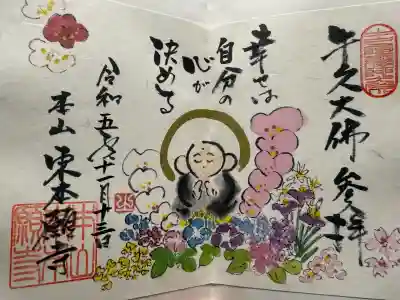 牛久大佛参拝
幸せは
自分の
心が
決める
令和五年十一月十三日
本山 東本願寺